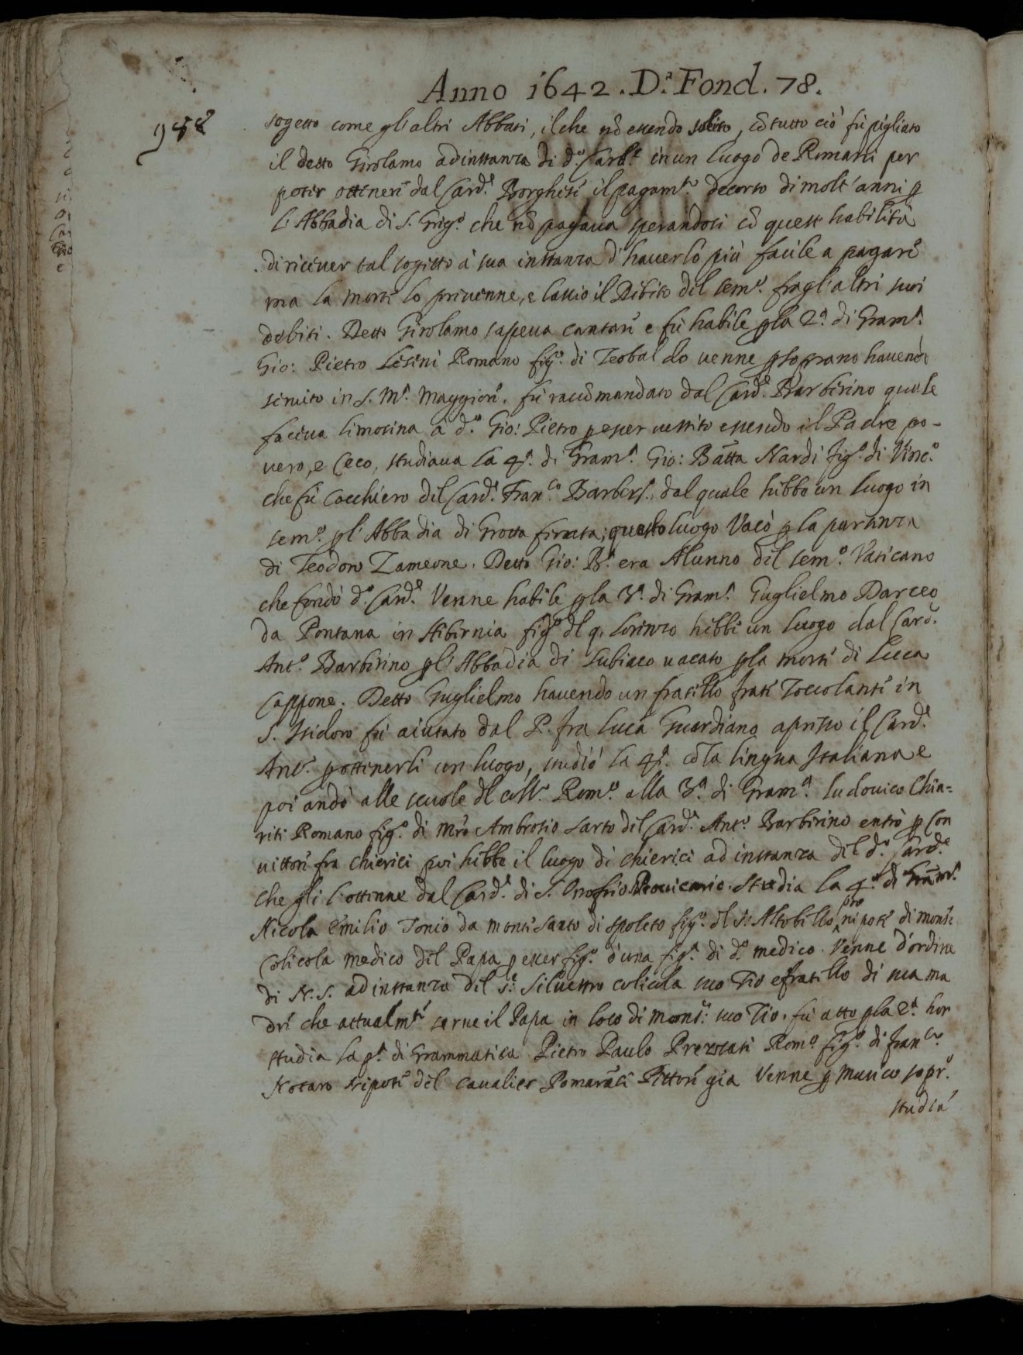 Anno 1642. D.ª Fond. 78.
958
sogetto come gli altri Abbati, il che nõ essendo solito, cõ tutto ciò fù pigliato
il detto Girolamo ad instanza di d.º Card.le in un luogo de Romani per
poter ottener dal Card.e Borghese il pagam.to decorso di molt'anni p
l'Abbadia di S. Grig.º che nõ pagava sperandosi cõ quest habilità
di ricever tal sogetto à sua instanza d'haverlo più facile a pagare
ma la morte lo prevenne, e lassio il Debito del sem.º fra gl'altri suoi
debiti. Detto Girolamo sapeva cantare e fù habile p la 2.ª di Gram.ª
Gio: Pietro Lesini Romano fig.º di Teobaldo venne p soprano havendo
servito in S. M.ª Maggiore. fù raccõmandato dal Card.e Barberino quale
faceva limosina à d.º Gio: Pietro p esser vestito essendo il Padre po-
vero, e Ceco, studiava la 4.ª di Gram.ª Gio: Batta Nardi fig.º di Vinc.º
che fù Cocchiero del Card.e Fran.co Barber.º dal quale hebbe un luogo in
sem.º p l'Abbadia di Grotta ferrata; questo luogo Vacò p la partenza
di Teodoro Zameone. Detto Gio: B.ª era Alunno del sem.º Vaticano
che fondò d.º Card.e Venne habile p la 3.ª di Gram.ª Guglielmo Darceo
da Pontana in Hibernia fig.º dl q. Lorenzo hebbe un luogo dal Card.e
Ant.º Barberino p l'Abbadia di Subiaco vacato p la morte di Lucca
Cappone. Detto Guglielmo havendo un fratello frate Zoccolante in
S. Isidoro fù aiutato dal P. fra Luca Guardiano apresso il Card.e
Ant.º p ottenerli un luogo, studiò la 4.ª cõ la lingua Italiana e
poi andò alle scuole dl coll.º Rom.º alla 3.ª di Gram.ª Ludovico Chia=
riti Romano fig.º di Mro Ambrosio sarto del Card.e Ant.º Barberino entrò p Con
vittore fra chierici poi hebbe il luogo di chierici ad instanza del d.º Card.e
che gli l'ottenne dal Card.e di S. Onofrio Vicario. Studia la 4.ª di Gram.ª
Nicola Emilio Tonio da monte santo di Spoleto fig.º dl S. Altobello, pro nipote di mons.
Colicola medico del Papa p esser fig.º d'una fig.ª di d.º medico. Venne d'ordine
di N. S. ad instanza del S.r Silvestro Colicola suo Zio e fratello di sua ma
dre che actualm.te serve il Papa in loco di mons.r suo Zio. fù atto p la 2.ª hor
studia la p.ª di Grammatica Pietro Paulo Rom.º fig.º di Fran.co
Notaro Nipote del Cavalier Pomaranci Pittore già Venne p Musico sopr.º
studià